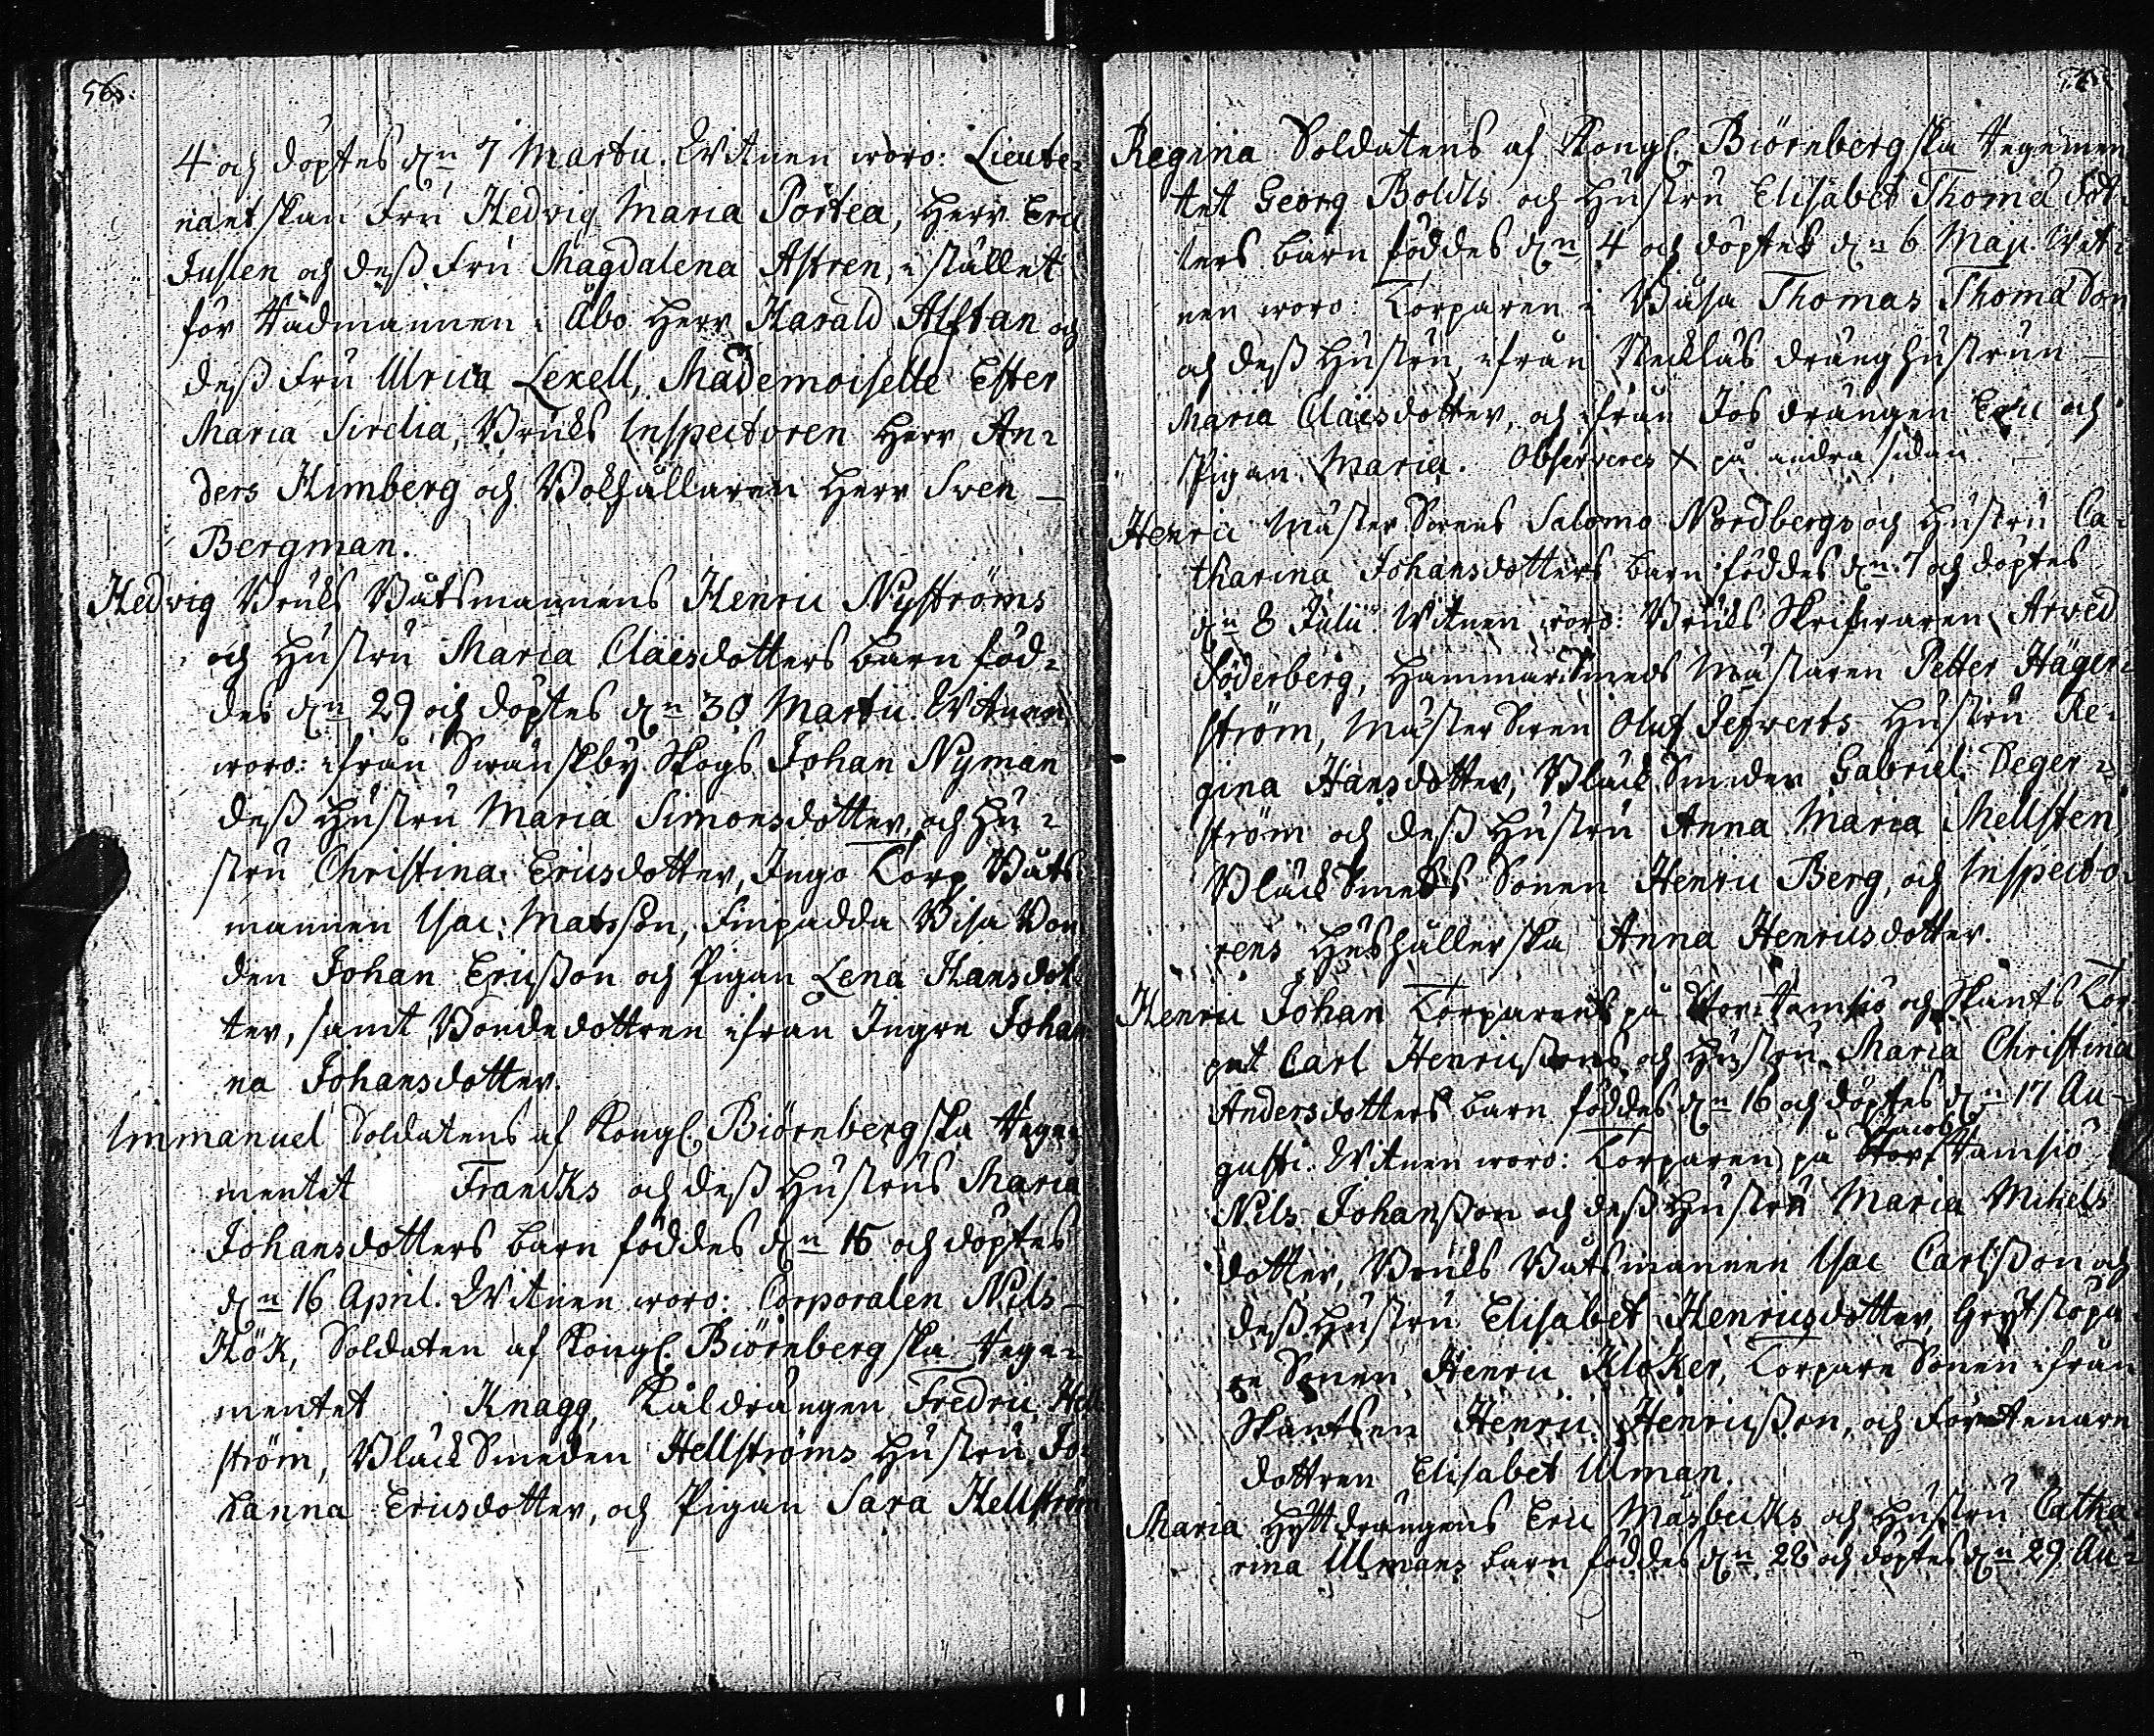 56.
4 och döptes d:n 7 Martii. Witnen woro: Lieute-
nantskan Fru Hedvig Maria Portea, Herr Eric
Juslen och dess Fru Magdalena Astren, i stället
för Rådmannen i Åbo Herr Harald Alftan och
dess Fru Ulrica Lexell, Mademoiselle Ester
Maria Sirelia, Bruks Inspectoren Herr An-
ders Kimberg och Bokhållaren Herr Sven
Bergman.
Hedvig Bruks Båtsmannens Henric Nyströms
och Hustru Maria Claësdotters barn föd-
des d:n 29 och döptes d:n 30 Martii. Witnen
woro: ifrån Swänskby Skogs Johan Nyman
dess Hustru Maria Simonsdotter, och Hu-
stru Christina Ericsdotter, Ingo Torp Båts-
mannen Isac Matsson, Finpadda Bisa Bon-
den Johan Ericsson och Pigan Lena Hansdot-
ter, samt Bondedottren ifrån Ingre Johan
na Johansdotter.
Immanuel Soldatens af Kongl. Biörnebergska Rege-
mentet Francks och dess Hustrus Maria
Johansdotters barn föddes d:n 15 och döptes
d:n 16 April. Witnen woro: Corporalen Nils
Hök, Soldaten af Kongl. Biörnebergska Rege-
mentet Knagg, Kåldrängen Fredric Hell
ström, Bläck Smeden Hellströms Hustru Jo-
hanna Ericsdotter, och Pigan Sara Hellström
Regina Soldatens af Kongl. Biörnebergska Regemen
tet Georg Boldts och Hustru Elisabet Thomæ Dot-
ters barn föddes d:n 4 och döptes d:n 6 Maji. Wit-
nen woro: Torparen i Båsa Thomas Thomæ Son
och dess Hustru, ifrån Stecklås dränghustrun
Maria Claësdotter, och ifrån Jos drängen Eric och
Pigan Maria. Observeres X på andra sidan.
Henric Mäster Swens Salomo Nordbergs och Hustru Ca-
tharina Johansdotters barn föddes d:n 7 och döptes
d:n 8 Julii. Witnen woro: Bruks Skrifwaren Arved
Söderberg, Hammar Smeds Mästaren Petter Häger-
ström, Mäster Swen Oluf Sefwerts Hustru Re-
gina Hansdotter, Bläck Smeden Gabriel Deger-
ström och dess Hustru Anna Maria Mellsten,
Bläck Smeds Sonen Henric Berg, och Inspecto-
rens Hushållerska Anna Henricsdotter.
Henric Johan Torparens på Stor Ramsiö och Skants Tor
pet Carl Henricssons och Hustru Maria Christina
Andersdotters barn föddes d:n 16 och döptes d:n 17 Au-
gusti. Witnen woro: Torparen på Jacobs Ramsiö
Nils Johansson och dess Hustru Maria Michels
dotter, Bruks Båtsmannen Isac Carlsson och
dess Hustru Elisabet Henricsdotter, Grytstöpa-
re Sonen Henric Kloker, Torpare Sonen ifrån
Skantsen Henric Henricsson, och Förrtenare
dottren Elisabet Ulman.
Maria Hyttdrängens Eric Masbacks och Hustru Catha
rina Ulmans barn föddes d:n 28 och döptes d:n 29 Au-